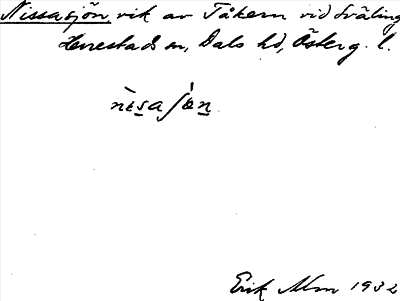 Nissasjön, vik av Tåkern vid Sväling
Herrestads sn, Dals hd, Österg. l.
nìsaʃǿn
Erik Alm 1932